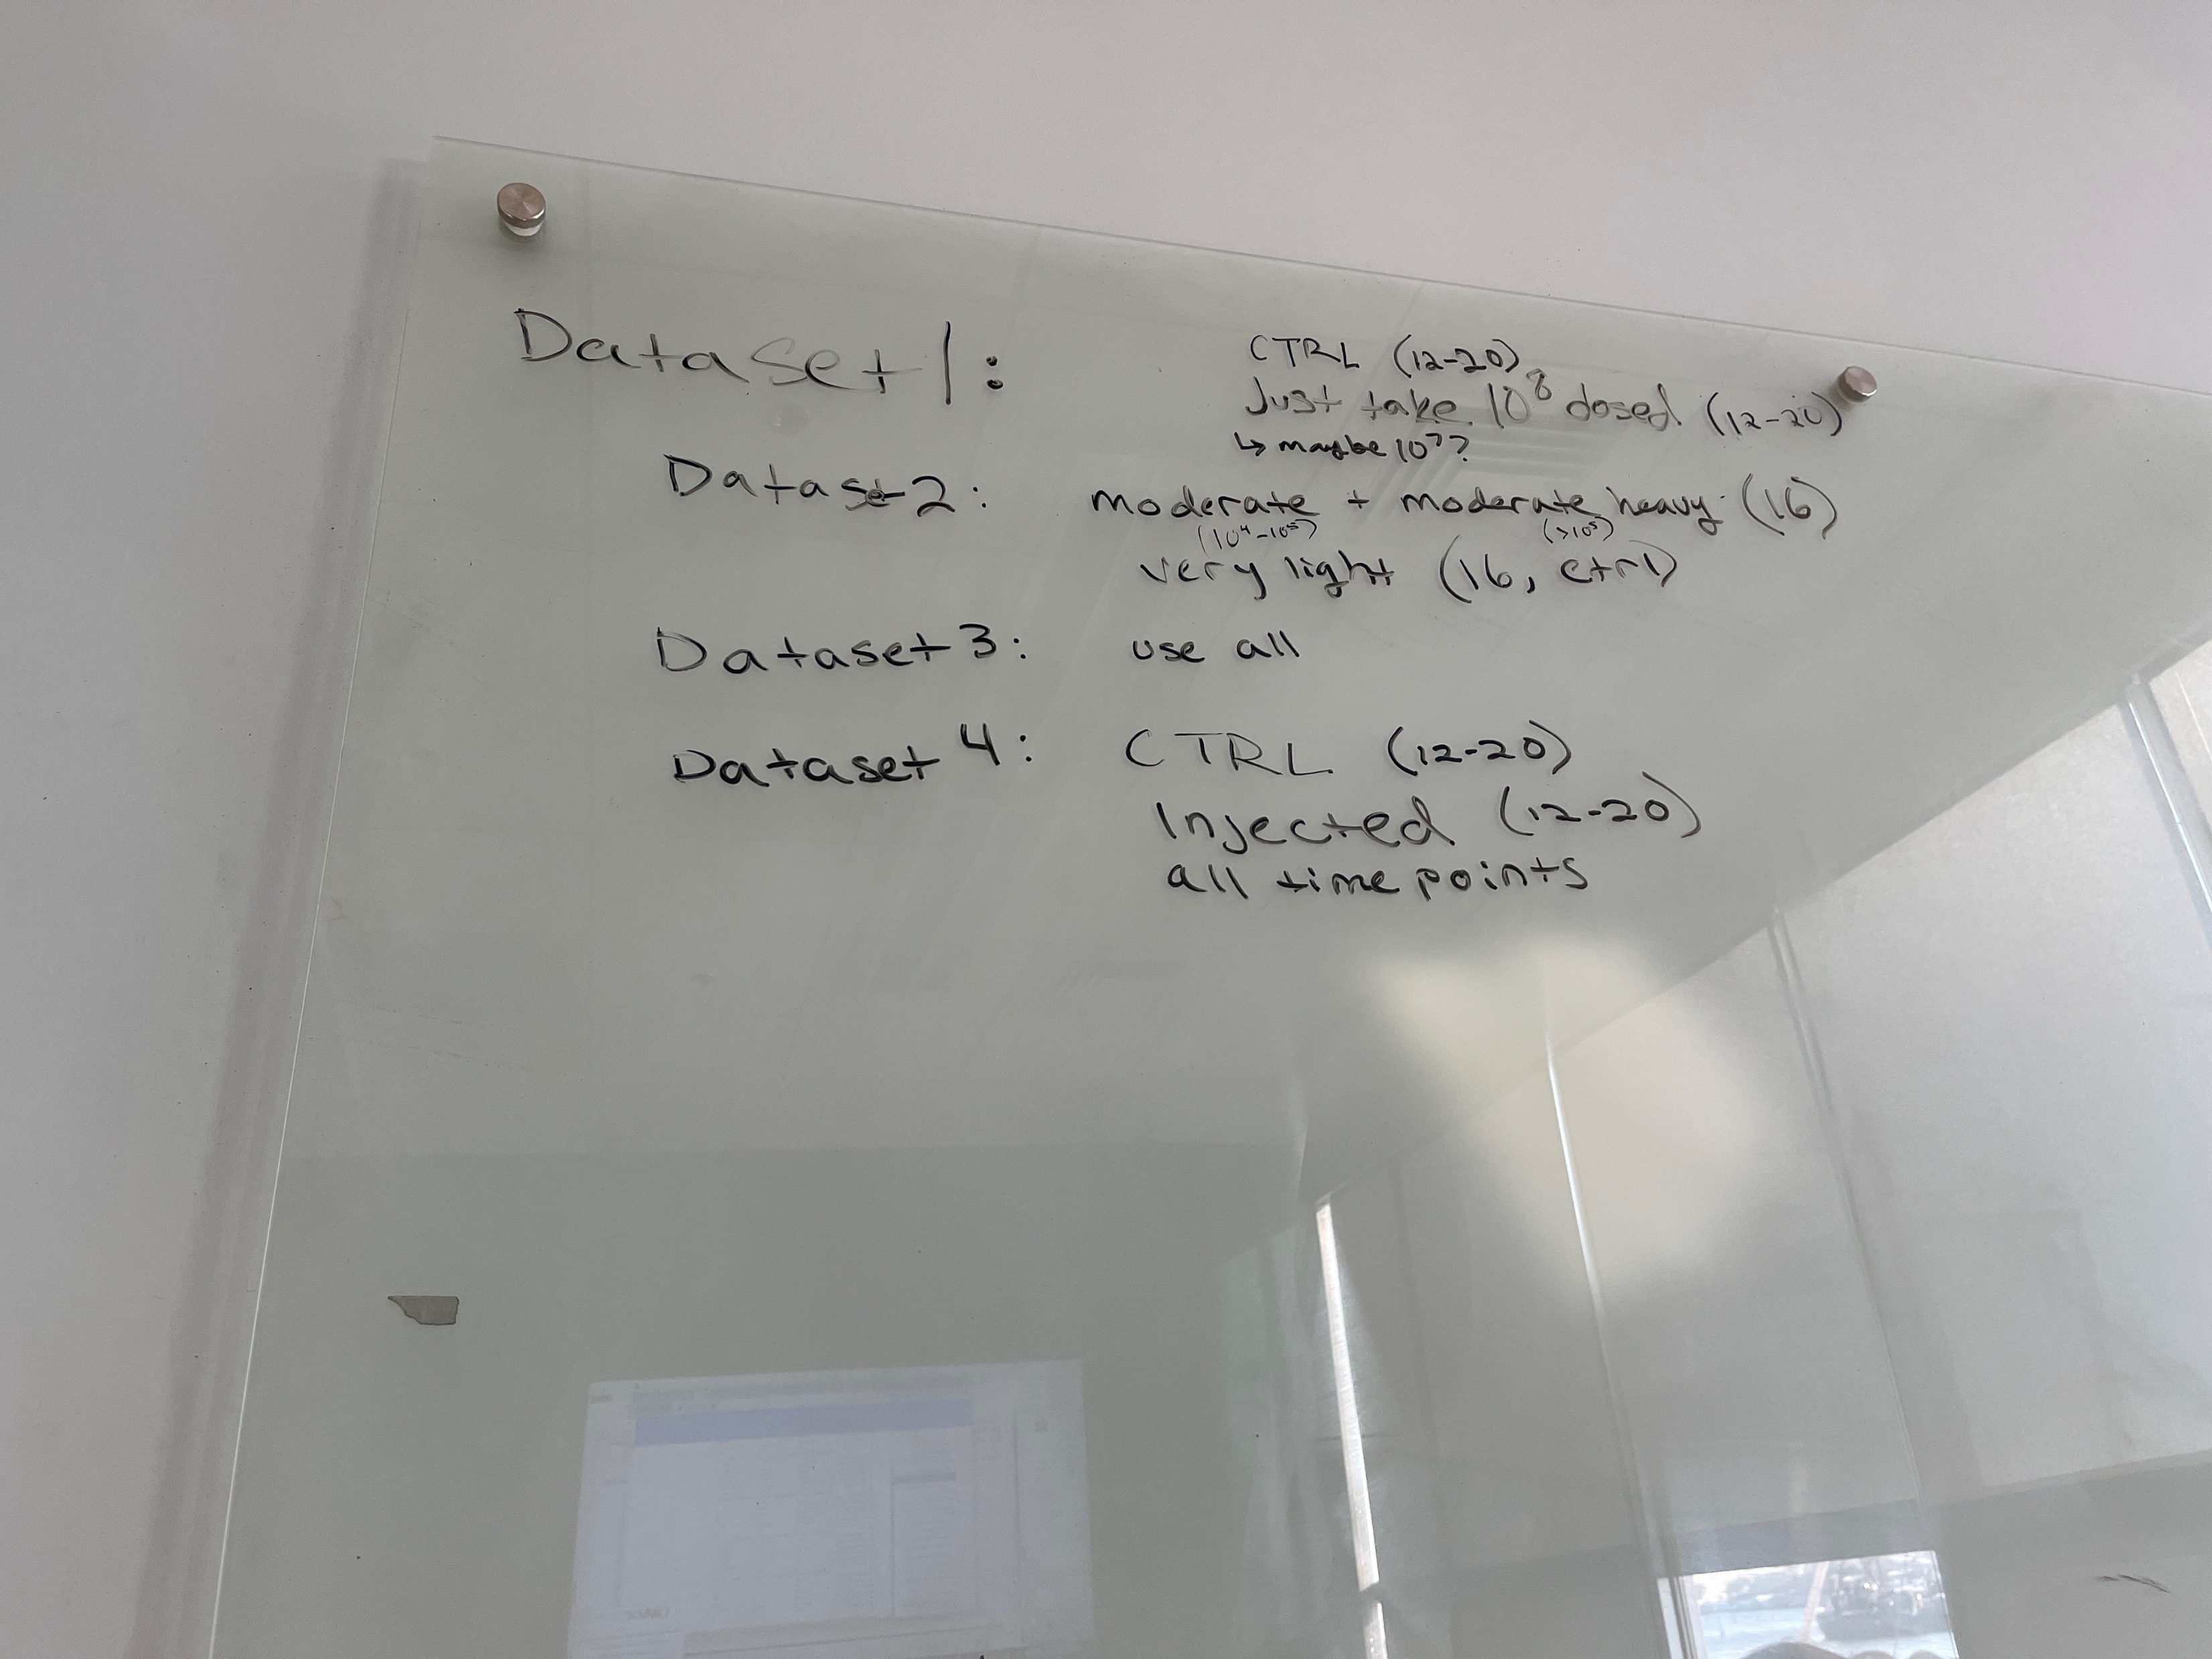 Dataset 1: CTRL (12-20)
Just take 10⁸ dosed (12-20)
↳ maybe 10⁷?
Dataset 2: moderate + moderate heavy (16)
(10⁴-10⁵) (>10⁵)
very light (16, ctrl)
Dataset 3: use all
Dataset 4: CTRL (12-20)
Injected (12-20)
all time points